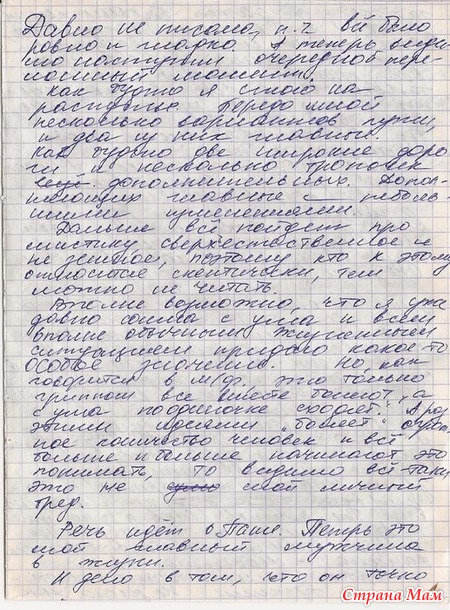 Давно не писала, п.ч всё было
ровно и гладко. А теперь види-
мо наступил очередной пере-
ломный момент.
Как будто я стою на
распутье. Передо мной
несколько вариантов пути,
и два из них главных.
Как будто две широкие доро-
ги и несколько тропок
дополнительных. Допол-
няющих главные — неболь-
шими изменениями.
Дальше всё пойдёт про
мистику, сверхестественное и
не земное, поэтому кто к этому
относится скептически, тем
можно не читать.
Вполне возможно, что я уже
давно сошла с ума и всем
вполне обычным жизненным
ситуациям придаю какое-то
особое значение. Но, как
говорится в м/ф, это только
гриппом все вместе болеют, а
с ума поодиночке сходят. А раз
этими идеями "болеет" огром-
ное количество человек и всё
больше и больше начинают это
понимать, то видимо всё-таки
это не мой личный
бред.
Речь идёт о Паше. Теперь это
мой главный мужчина
в жизни.
И дело в том, что он точно
Страна Мам